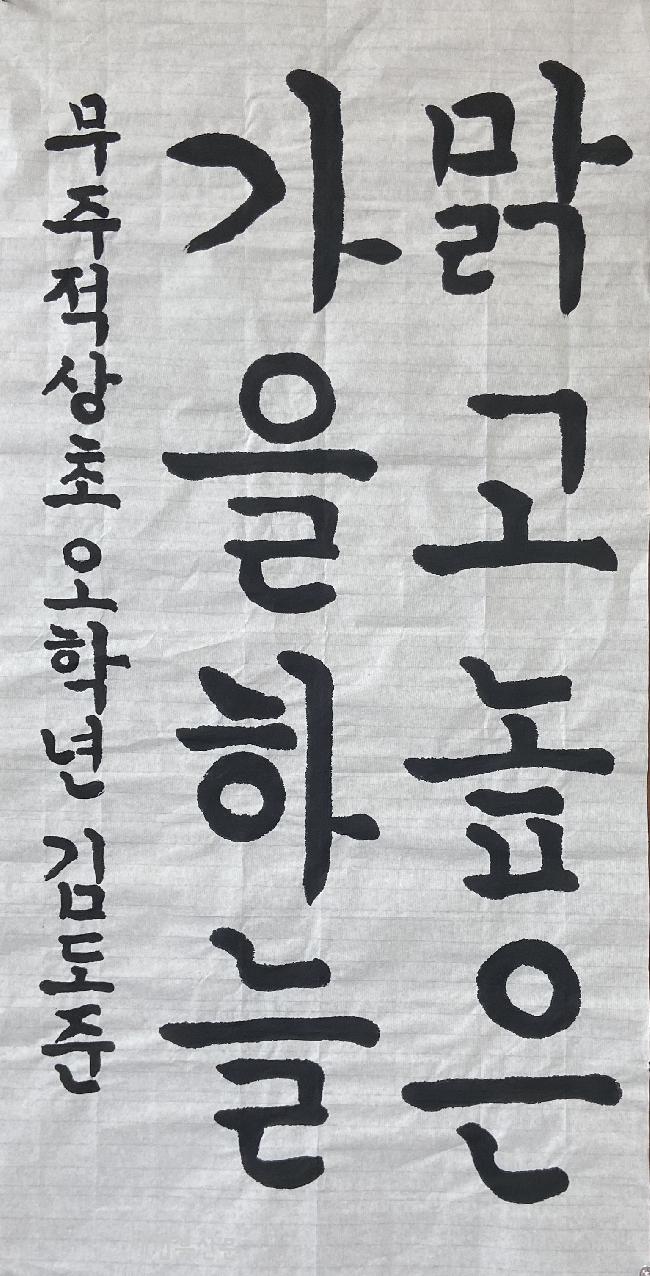 맑고높은
가을하늘
무주적상초 오학년 김도준